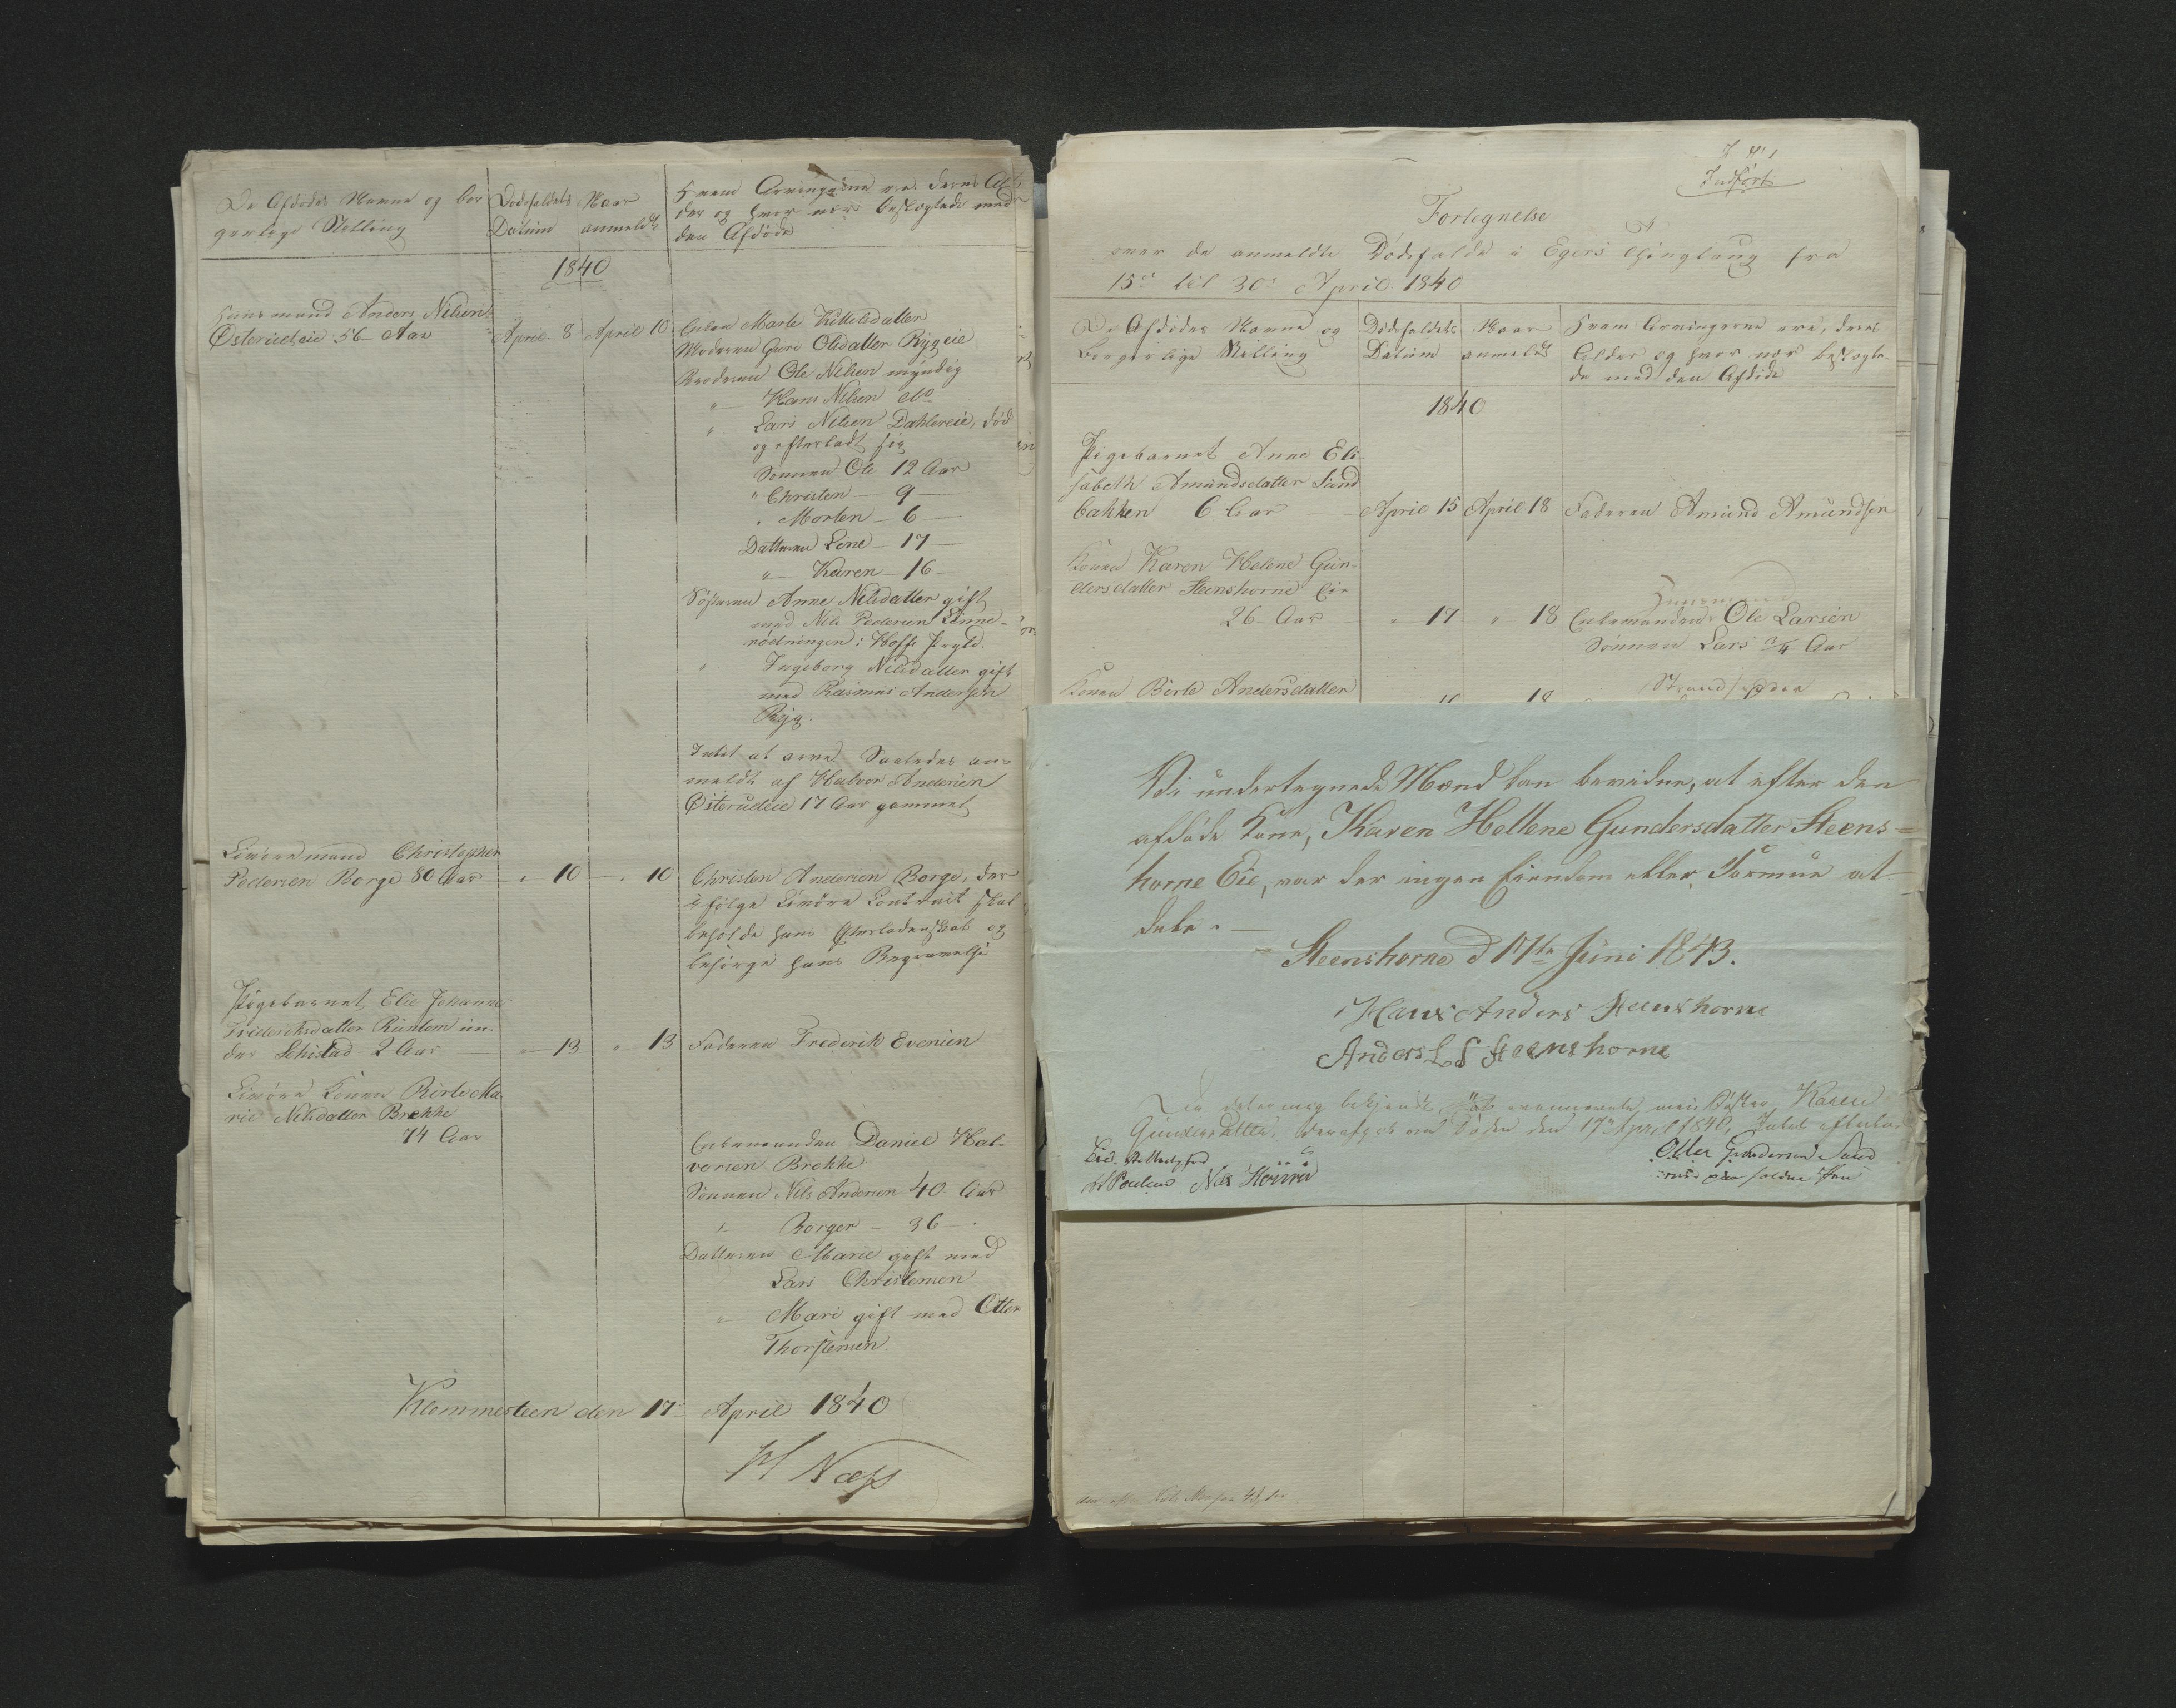 De Afdødes Navne og bor
gerlige Stilling
Dødsfaldets
Datum
Naar
anmeldt
Hvem Arvingerne ere, deres Al
der og hvor nær beslægtede med
den Afdøde
1840
Huusmand Anders Nilsen
Østerudeie 56 Aar
April 8
April 10
Enken Marte Kittelsdatter
Moderen Guri Olsdatter Rygeie
Broderen Ole Nilsen myndig
" Hans Nilsen do
" Lars Nilsen Dahlereie, død
og efterladt sig
Sønnen Ole 12 Aar
" Christen — 9 —
" Morten — 6 —
Datteren Line — 17 —
" Karen — 16 —
Søsteren Anne Nilsdatter gift
med Nils Pedersen
i Hoff Prgld.
" Ingeborg Nilsdatter gift
med Rasmus Andersen
Ryg.
Intet at arve Saaledes an-
meldt af Halvor Andersen
Østerudeie 17 Aar gammel
Livøresmand Christopher
Pedersen Borge 80 Aar —
" 10 — " 10
Christen Andersen Borge, der
ifølge Livøre Contract skal
beholde hans Efterladenskab og
besørge hans Begravelse
Pigebarnet Elie Johanne
Frederiksdatter Rustem un-
der Schistad 2 Aar
" 13 " 13
Faderen Frederik Evensen
Livøre Konen Birte Ma
rie Nilsdatter Brekke
74 Aar
Enkemanden Daniel Hal-
vorsen Brekke
Sønnen Nils Andersen 40 Aar
" Borger — 36 —
Datteren Marie gift med
Lars Christensen
" Mari gift med Otter
Thorstensen.
Klommesteen den 17de April 1840
H Næss
Indført
Fortegnelse
over de anmeldte Dødsfalde i Egers Thinglaug fra
15de til 30te April 1840
De Afdødes Navne og
Borgerlige Stilling
Dødsfaldets
Datum
Naar
anmeldt
Hvem Arvingerne ere, deres
Alder og hvor nær beslægte-
de med den Afdøde
1840
Pigebarnet Anne Eli
sabeth Amundsdatter Sund
bakken 6 Aar —
April 15
April 18
Faderen Amund Amundsen
Konen Karen Helene Gun-
dersdatter Steenshorne Eie
26 Aar —
" 17 " 18
Huusmand
Enkemanden Ole Larsen
Sønnen Lars 3/4 Aar
Konen Birte Andersdatter
18
Strandsidder
Vi undertegnede Mænd kan bevidne, at efter den
afdøde Kone, Karen Hellene Gundersdatter Steens=
horne Eie, var der ingen Eiendom eller Formue at
dele. —
Steenshorne d 17te Juni 1843.
Hans Anders Steenshorne
Anders L S Steenshorne
mig bekjendt, at min Søster Karen
Gundersdatter, ved Døden den 17de April 1840, Intet efterlod
Eid.
Otter Gundersen Sand
med paaholden Pen